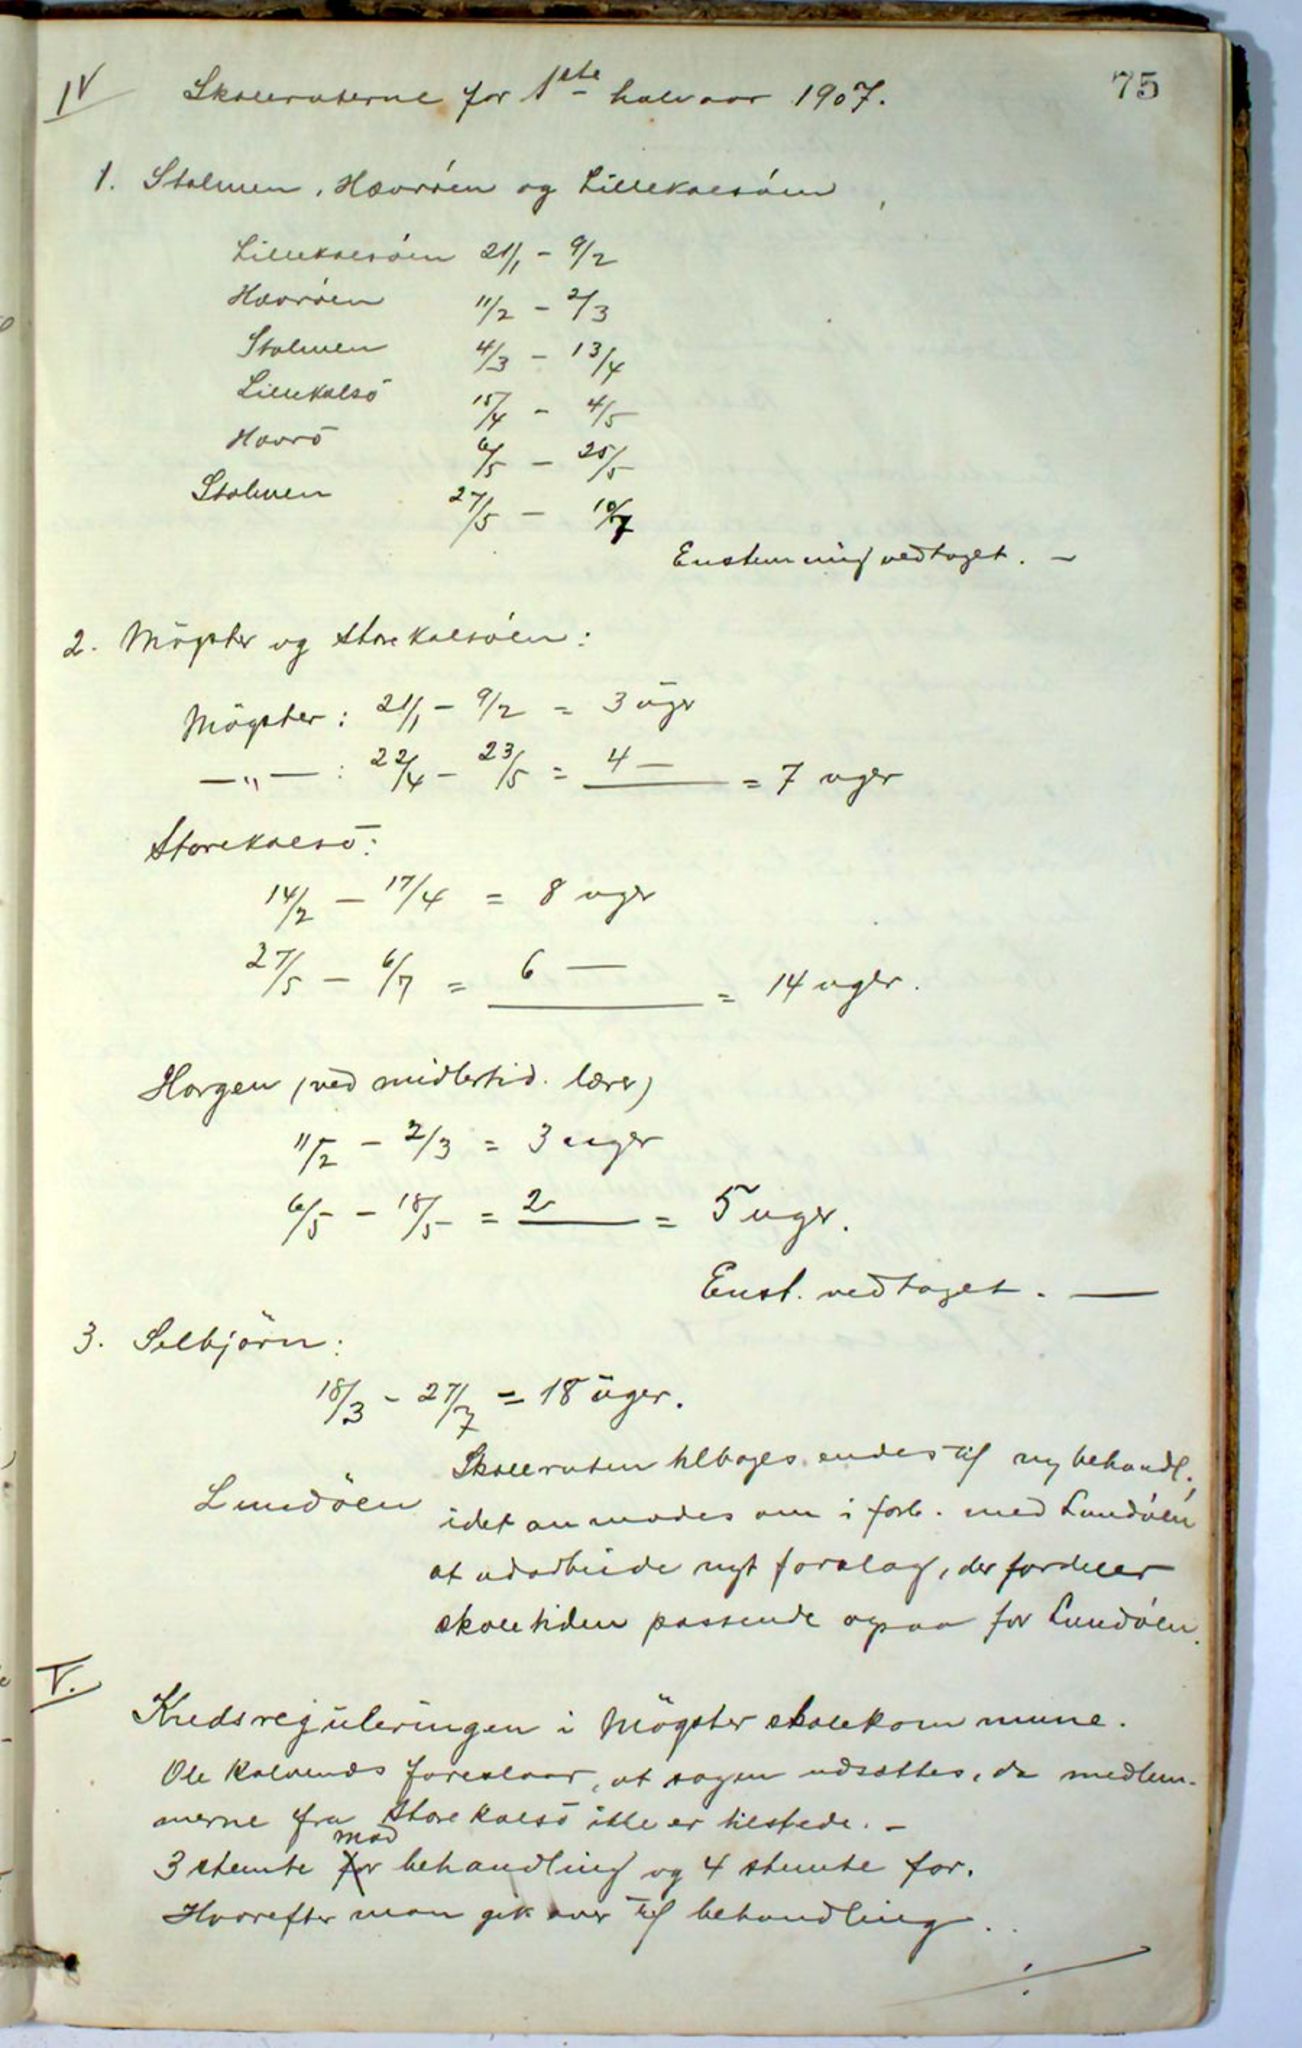 75
IV Skoleruterne for 1ste halvaar 1907.
1. Stolmen, Havröen og Lillekalsöen,
Lillekalsöen 21/1 - 9/2
Havröen 11/2 - 2/3
Stolmen 4/3 - 13/4
Lillekalsö 15/4 - 4/5
Havrö 6/5 - 25/5
Stolmen 27/5 - 10/7
Enstemmig vedtaget. -
2. Mögster og Storekalsöen:
Mögster: 21/1 - 9/2 = 3 uger
—„— : 22/4 - 23/5 = 4 — = 7 uger
Storekalsö:
14/2 - 17/4 = 8 uger
27/5 - 6/7 = 6 — = 14 uger.
Horgen (ved midlertid. lærer)
11/2 - 2/3 = 3 uger
6/5 - 18/5 = 2 = 5 uger.
Enst. vedtaget. —
3. Selbjörn:
18/3 - 27/7 = 18 uger.
Skoleruten tilbagesendes til ny behandl.,
Lundöen idet anmodes om i forb. med Lundöen
at udarbeide nyt forslag, der fordeler
skoletiden passende ogsaa for Lundöen.
V.
Kredsreguleringen i Mögster skolekommune.
Ole Kalvenes foreslaar, at sagen udsættes, da medlem-
merne fra Storekalsö ikke er tilstede. -
mod
3 stemte for behandling og 4 stemte for.
Hvorefter man gik over til behandling.